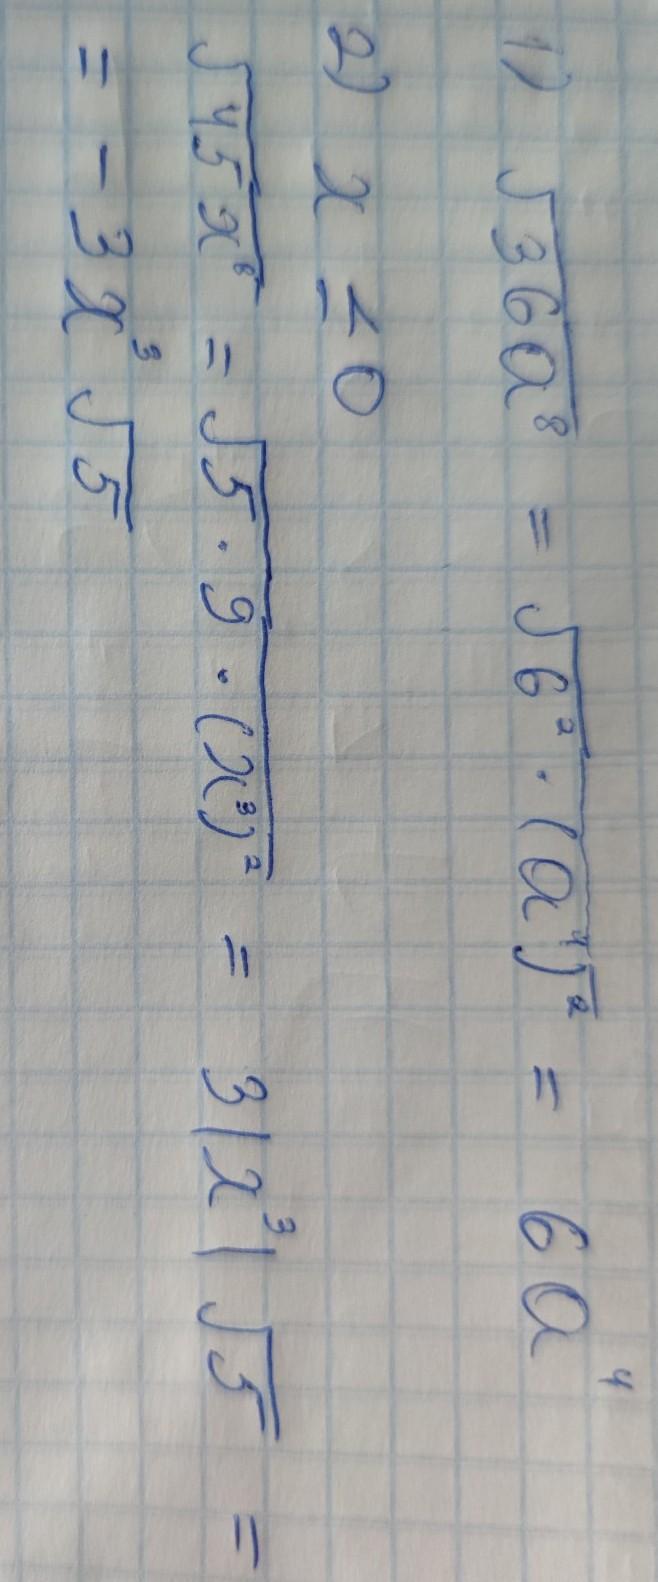 1) √36a⁸ = √6² · (a⁴)² = 6a⁴
2) x ≤ 0
√45x⁶ = √5 · 9 · (x³)² = 3|x³|√5 =
= -3x³√5